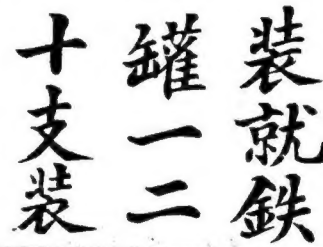 装就鉄
罐一二
十支装